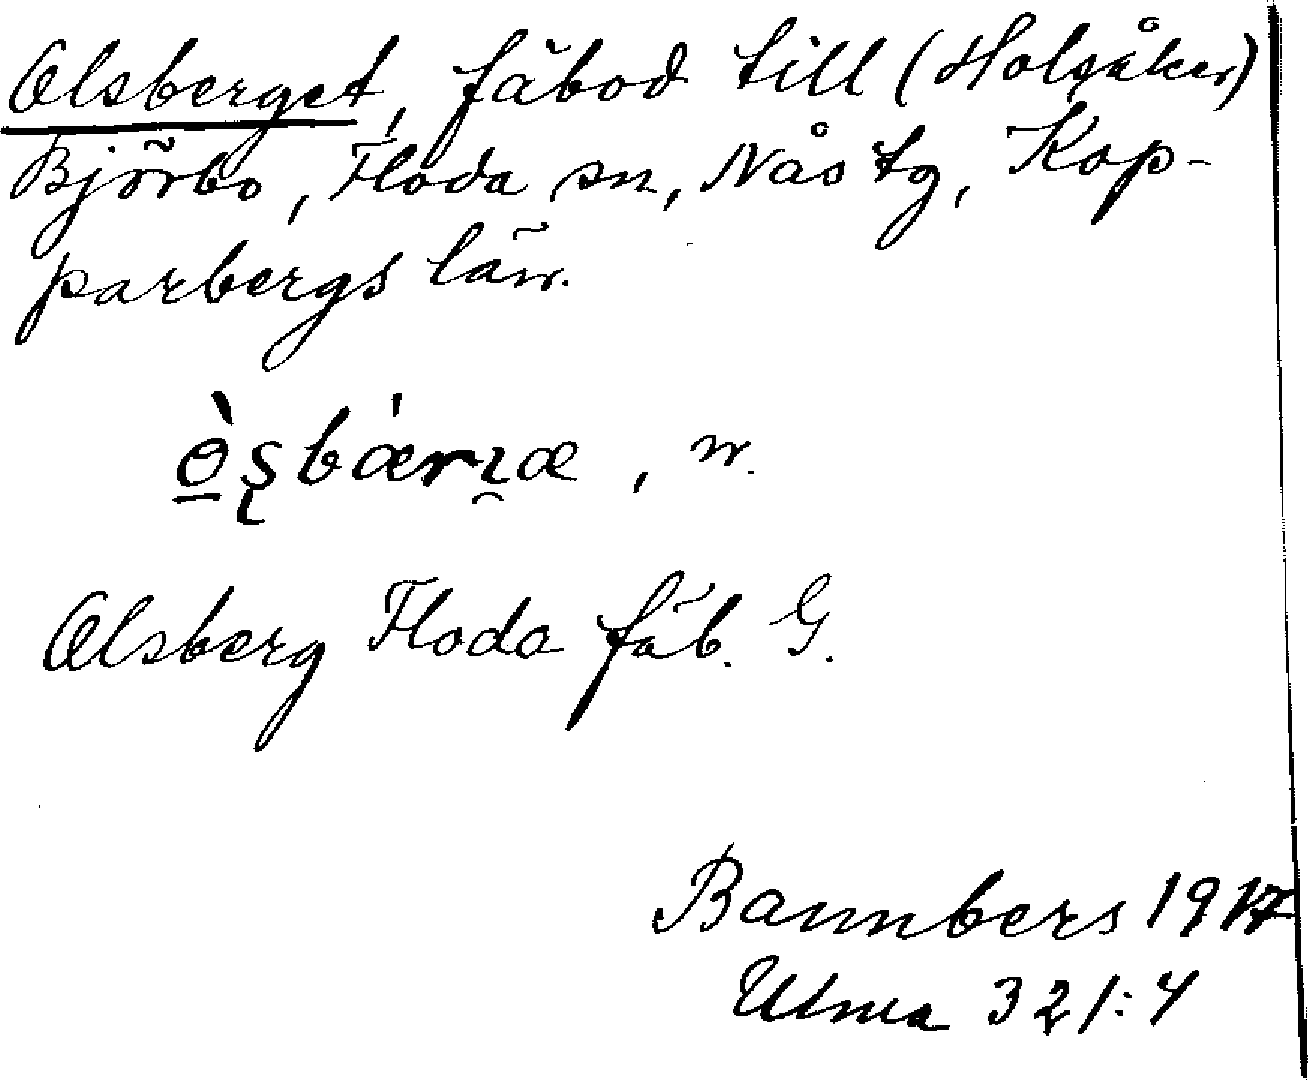 Olsberget, fäbod till (Holsåker)
Björbo, Floda sn, Nås tg, Kop-
parbergs län.
ò̱ʂbærɪ̯æ, n.
Olsberg Floda fäb. G.
Bannbers 1917
Ulma 321:4